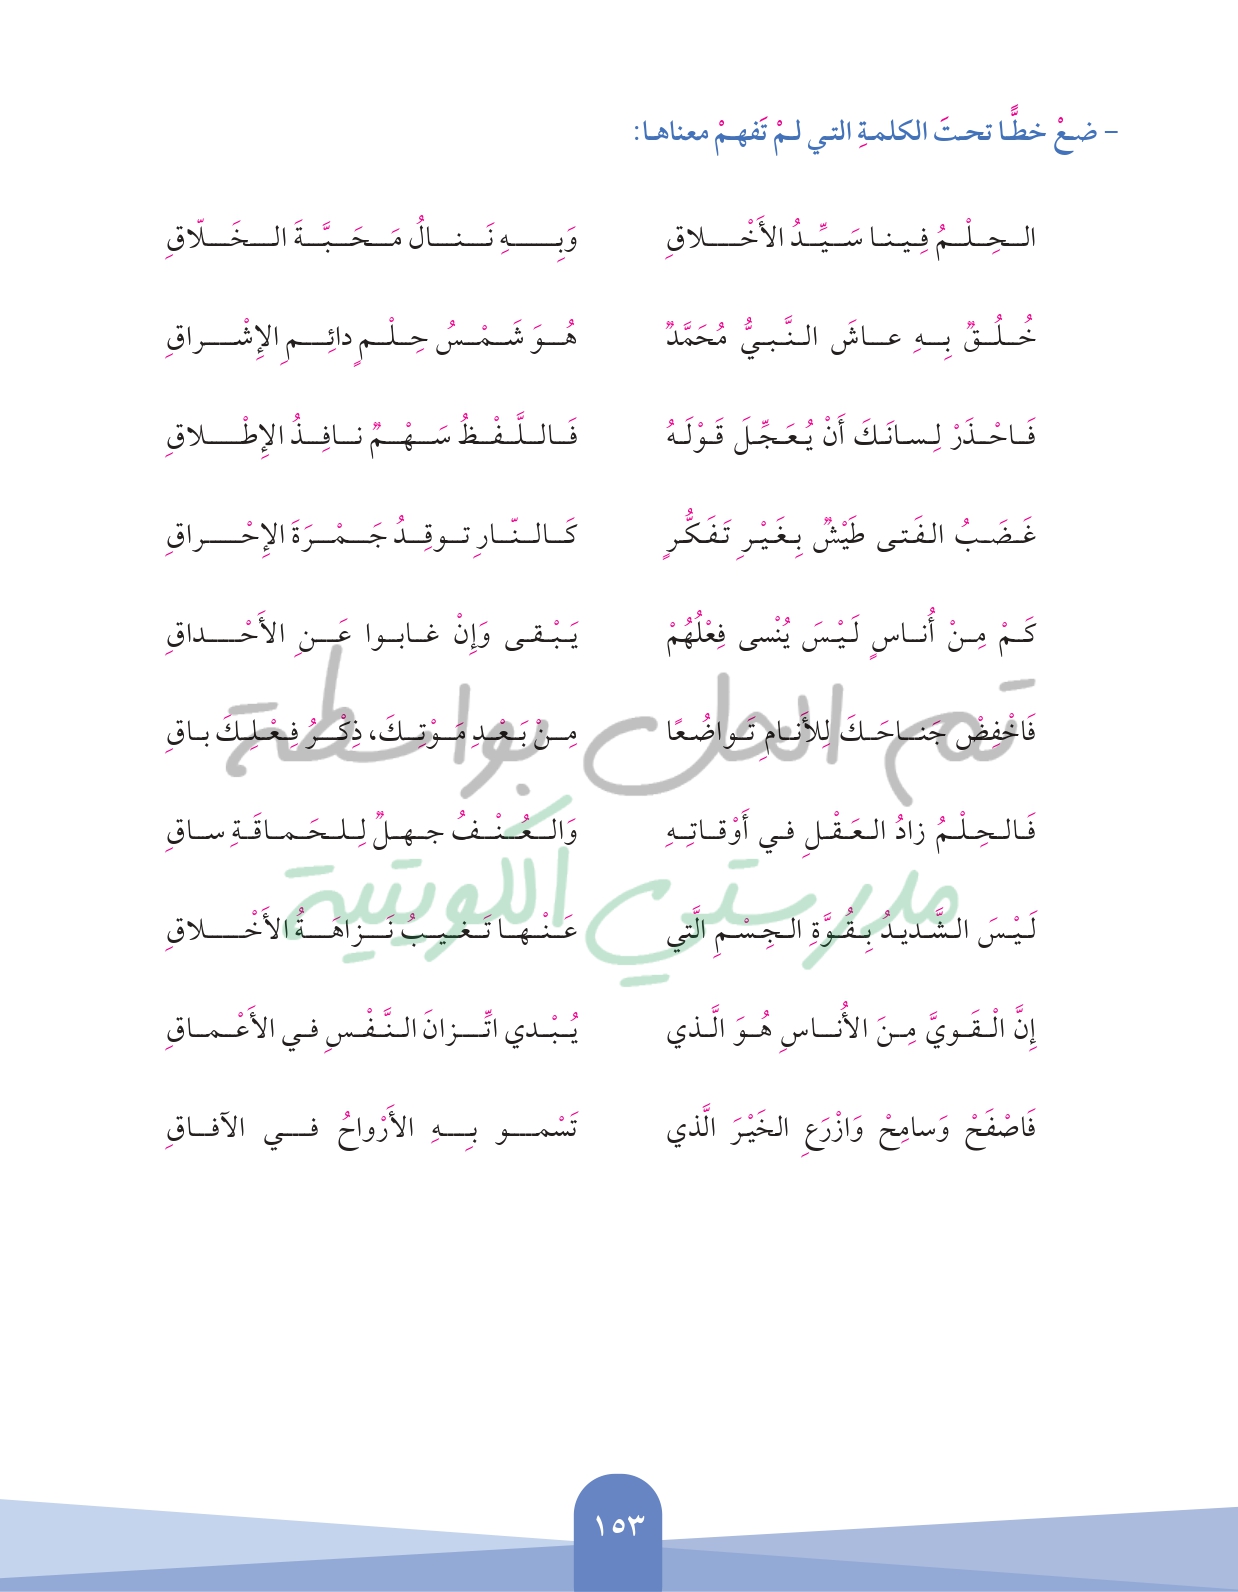 - ضعْ خطًّا تحتَ الكلمةِ التي لمْ تَفهمْ معناها:
الحِلْمُ فِينا سَيِّدُ الأَخْلاقِ وَبِهِ نَنالُ مَحَبَّةَ الخَلّاقِ
خُلُقٌ بِهِ عاشَ النَّبيُّ مُحَمَّدٌ هُوَ شَمْسُ حِلْمٍ دائِمِ الإِشْراقِ
فَاحْذَرْ لِسانَكَ أَنْ يُعَجِّلَ قَوْلَهُ فَاللَّفْظُ سَهْمٌ نافِذُ الإِطْلاقِ
غَضَبُ الفَتى طَيْشٌ بِغَيْرِ تَفَكُّرٍ كَالنّارِ توقِدُ جَمْرَةَ الإِحْراقِ
كَمْ مِنْ أُناسٍ لَيْسَ يُنْسى فِعْلُهُمْ يَبْقى وَإِنْ غابوا عَنِ الأَحْداقِ
فَاخْفِضْ جَناحَكَ لِلأَنامِ تَواضُعًا مِنْ بَعْدِ مَوْتِكَ، ذِكْرُ فِعْلِكَ باقِ
تم الحل بواسطة
فَالحِلْمُ زادُ العَقْلِ في أَوْقاتِهِ وَالعُنْفُ جهلٌ لِلحَماقَةِ ساقِ
مدرستي الكويتية
لَيْسَ الشَّديدُ بِقُوَّةِ الجِسْمِ الَّتي عَنْها تَغيبُ نَزاهَةُ الأَخْلاقِ
إِنَّ الْقَويَّ مِنَ الأُناسِ هُوَ الَّذي يُبْدي اتِّزانَ النَّفْسِ في الأَعْماقِ
فَاصْفَحْ وَسامِحْ وَازْرَعِ الخَيْرَ الَّذي تَسْمو بِهِ الأَرْواحُ في الآفاقِ
١٥٣